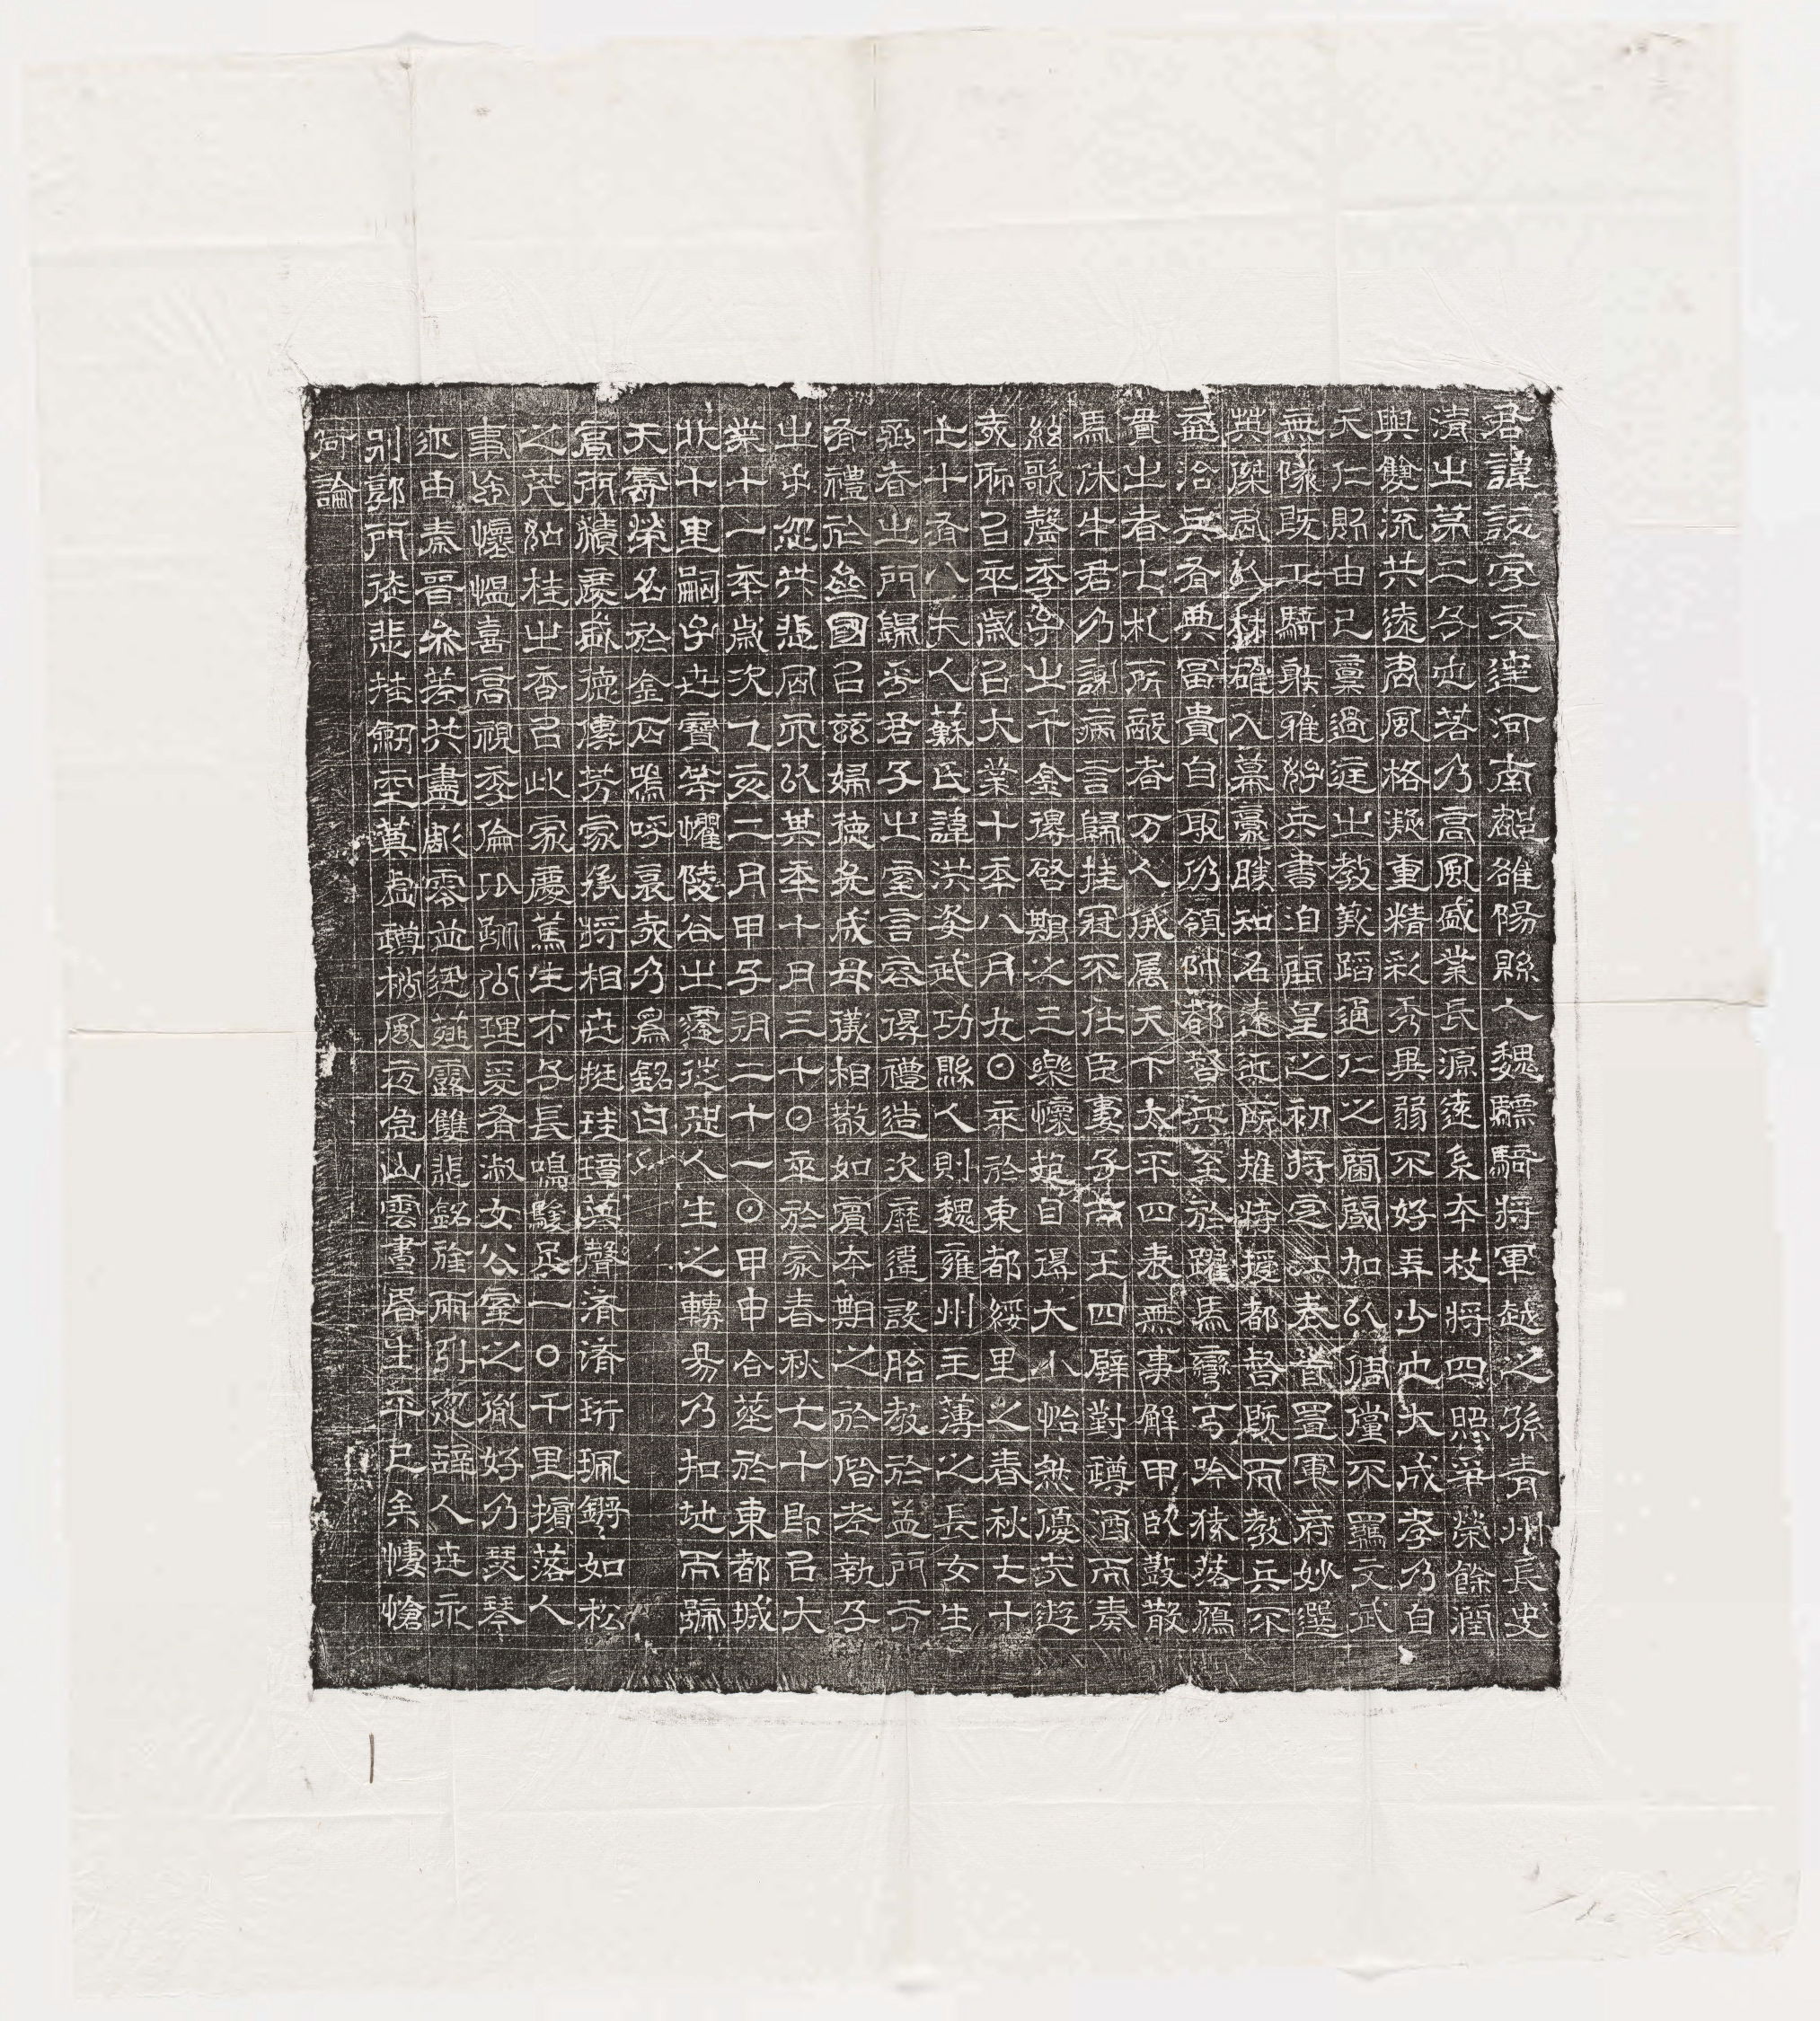 君諱字文達河南郡雒陽縣人魏驃騎將軍越之孫青州長史
清之第二子也若乃高風盛業長源遠系本枝將四照爭榮餘潤
與雙流共遠君風格凝重精彩秀異弱不好弄少也大成孝乃自
天仁則由己稟過庭之教義蹈通仁之閫閾加以倜儻不羈文武
無隊既工騎射雅好兵書洎開皇之初將定江表首置軍府妙選
英傑君以材雄入幕豪勝知名遠近所推特授都督既而教兵不
洽兵有典富貴自取仍領帥都督兵至於躍馬彎弓吟猿落鴈
貫之者七札所敵者万人俄属天下太平四表無事解甲卧鼓散
馬休牛君乃謝病言歸挂冠不仕臣妻子而王四壁對罇酒而奏
絃歌罄季子之千金得啓期之三樂懷自大小怡然優哉遊
哉聊以卒歲以大業十年八月九日卒於東都綏里之春秋七十
七十有八夫人蘇氏諱洪姿武功縣人則魏雍州主薄之長女生
之門歸乎君子之室言容得禮造次靡違設胎教於孟門示
有禮於國以茲婦德成母儀相敬如賓本期之於偕老執子
之手從共悲同穴以其年十月三十日卒於家春秋七十即以大
業十一年歲次乙亥二月甲子朔二十一日甲申合葬於東都城
北十里嗣子世寶等懼陵谷之遷從恐人生之轉易乃扣地而號
天壽榮名於金石嗚呼哀哉乃爲銘曰
高門積慶盛德傳芳家承將相世挺珪璋英聲濟濟珩珮鏘鏘如松
之茂如桂之香以此家慶篤生才子長鳴駿足一日千里擯落人
事懷慍喜高視季倫以公理爰有淑女公室之胤好乃琴
迹由秦晉參差共盡彫零並迅薤露雙悲銘旌兩引忽辭人世永
別郭門徒悲挂劒空奠虚罇松風夜急山雲晝昏生平已矣悽愴
何論